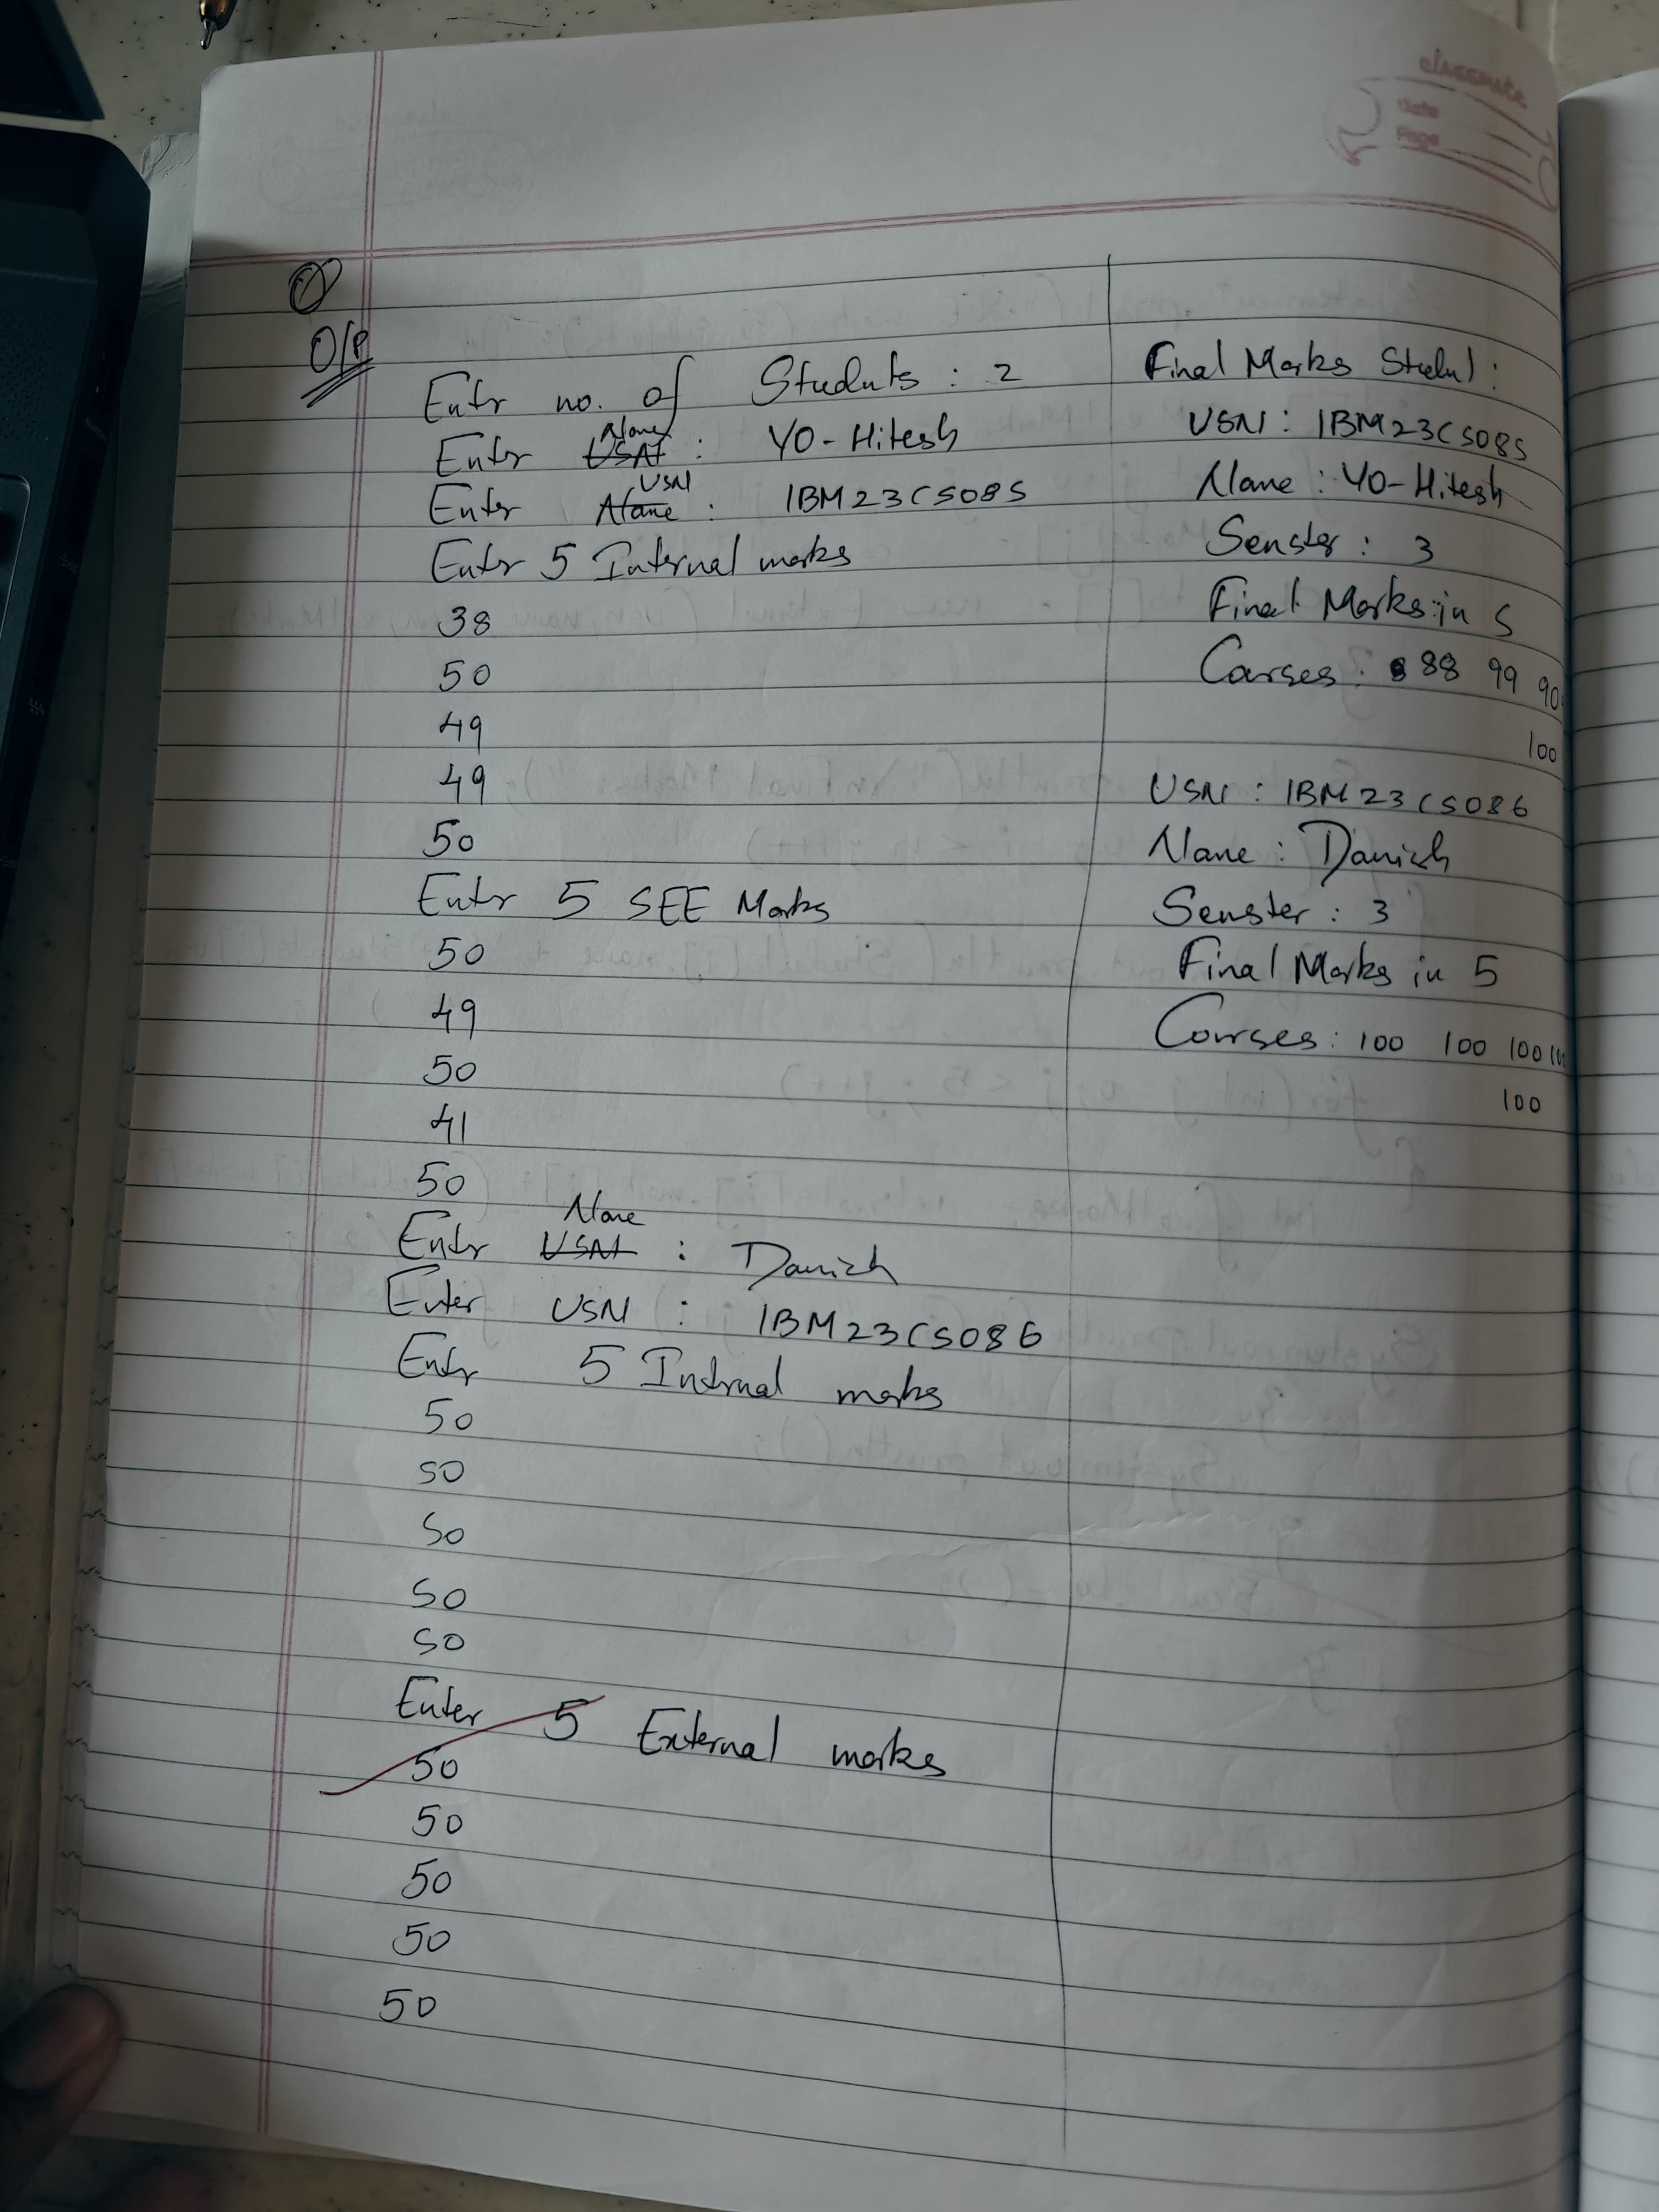 classmate
Date
Page
O/P
Enter no. of Students : 2
Name
Enter USN : YO-Hitesh
USN
Enter Name : 1BM23CS085
Enter 5 Internal marks
38
50
49
49
50
Enter 5 SEE Marks
50
49
50
41
50
Name
Enter USN : Danish
Enter USN : 1BM23CS086
Enter 5 Internal marks
50
50
50
50
50
Enter 5 External marks
50
50
50
50
50
Final Marks :
USN : 1BM23CS085
Name : YO-Hitesh
Semster : 3
Final Marks in 5
Courses : 88 99 90
100
USN : 1BM23CS086
Name : Danish
Semster : 3
Final Marks in 5
Courses : 100 100 100
100